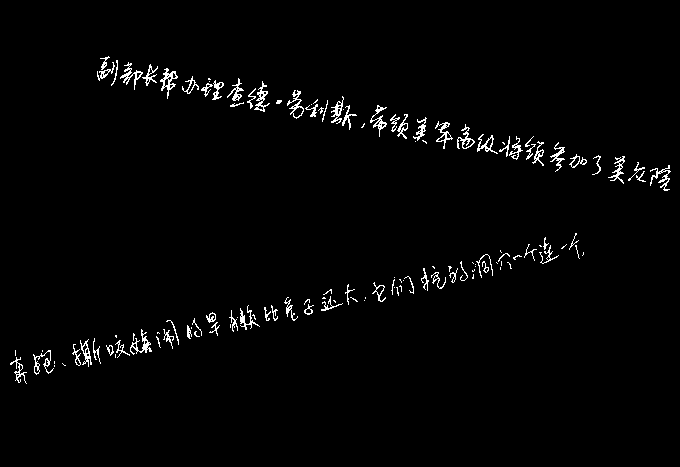 副部长帮办理查德·劳利斯,带领美军高级将领参加了美众院
奔跑、撕咬嬉闹的旱獭比兔子还大,它们挖的洞穴一个连一个,